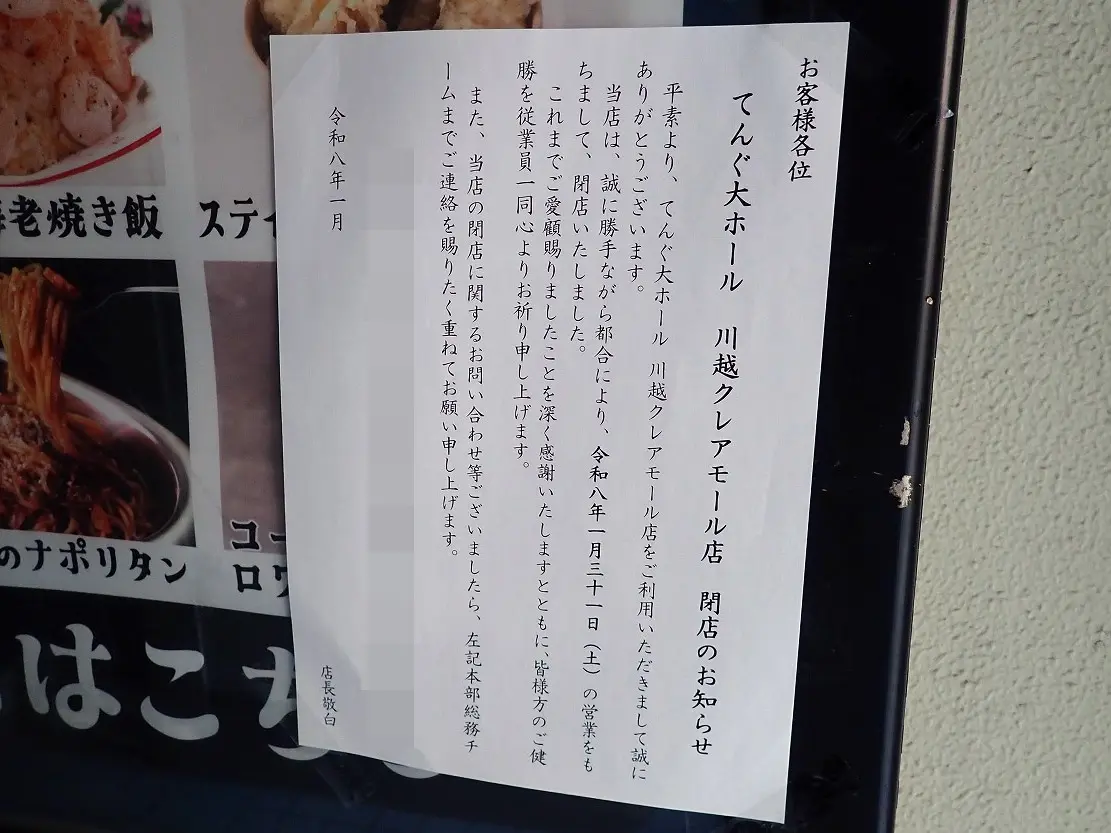 お客様各位
てんぐ大ホール 川越クレアモール店 閉店のお知らせ
平素より、てんぐ大ホール 川越クレアモール店をご利用いただきまして誠に
ありがとうございます。
当店は、誠に勝手ながら都合により、令和八年一月三十一日(土)の営業をも
ちまして、閉店いたしました。
これまでご愛顧賜りましたことを深く感謝いたしますとともに、皆様方のご健
勝を従業員一同心よりお祈り申し上げます。
また、当店の閉店に関するお問い合わせ等ございましたら、左記本部総務チ
ームまでご連絡を賜りたく重ねてお願い申し上げます。
令和八年一月
店長敬白
老焼き飯
ステ
のナポリタン
コー
ロ
はこち